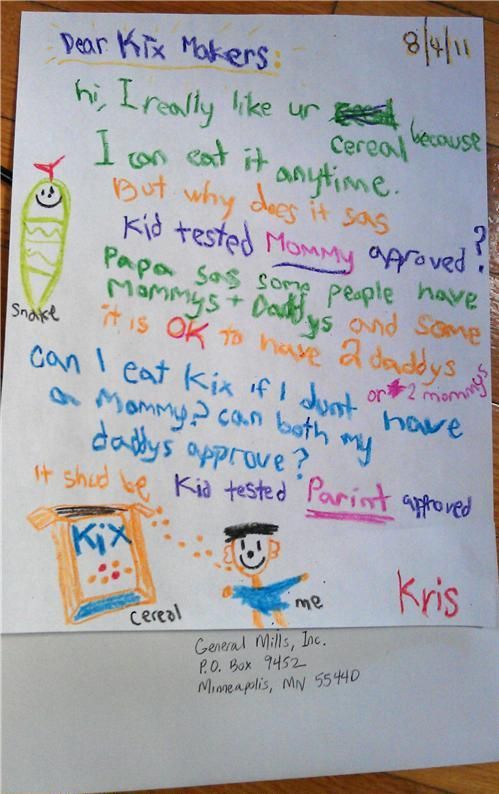 Dear Kix Makers:
8/4/11
hi, I really like ur because
cereal
I can eat it anytime.
But why does it sas
Kid tested Mommy approved?
Papa sas some people have
Mommys + Daddys and some
it is OK to have 2 daddys
or 2 mommys
can I eat Kix if I dunt have
an Mommy? can both my
daddys approve?
it shud be Kid tested Parint approved
Snake
Kix
cereal
me
Kris
General Mills, Inc.
P.O. Box 9452
Minneapolis, MN 55440